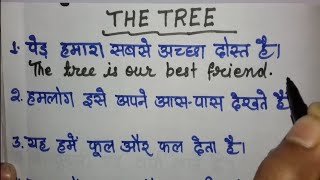 THE TREE
1. पेड़ हमारा सबसे अच्छा दोस्त है।
The tree is our best friend.
2. हमलोग इसे अपने आस-पास देखते हैं
3. यह हमें फूल और फल देता है।